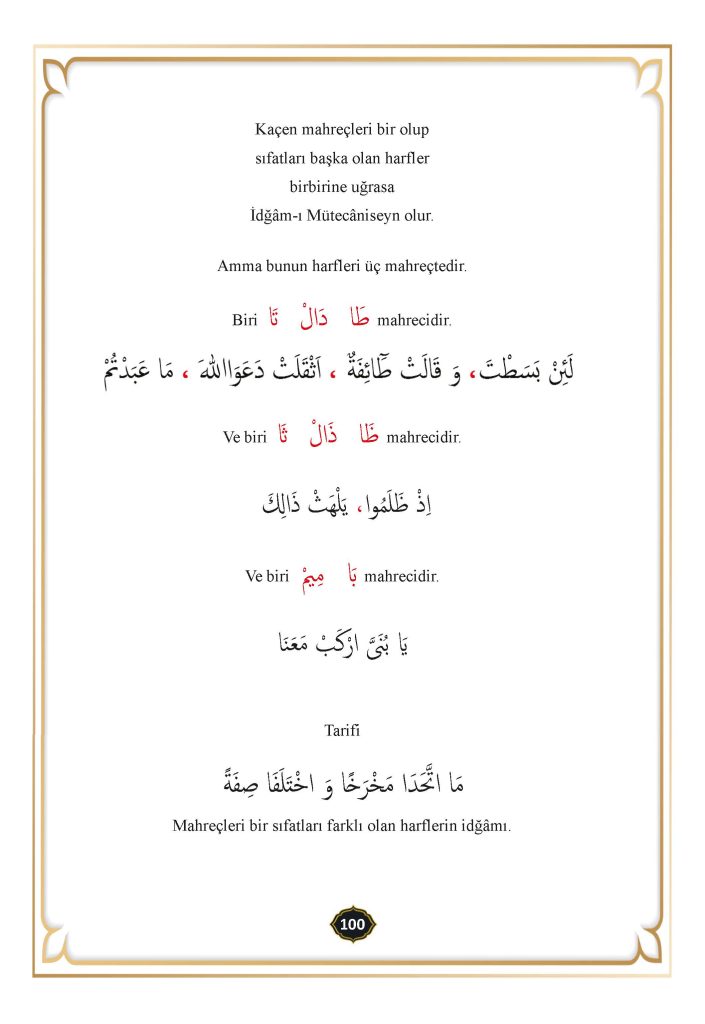 Kaçen mahreçleri bir olup
sıfatları başka olan harfler
birbirine uğrasa
İdğâm-ı Mütecâniseyn olur.
Amma bunun harfleri üç mahreçtedir.
Biri طَا دَالْ تَا mahrecidir.
لَئِنْ بَسَطْتَ، وَ قَالَتْ طَٓائِفَةٌ ، اَثْقَلَتْ دَعَوَااللّٰهَ ، مَا عَبَدْتُمْ
Ve biri ظَا ذَالْ ثَا mahrecidir.
اِذْ ظَلَمُوا، يَلْهَثْ ذَالِكَ
Ve biri بَا مِيمْ mahrecidir.
يَا بُنَىَّ ارْكَبْ مَعَنَا
Tarifi
مَا اتَّحَدَا مَخْرَخًا وَ اخْتَلَفَا صِفَةً
Mahreçleri bir sıfatları farklı olan harflerin idğâmı.
100